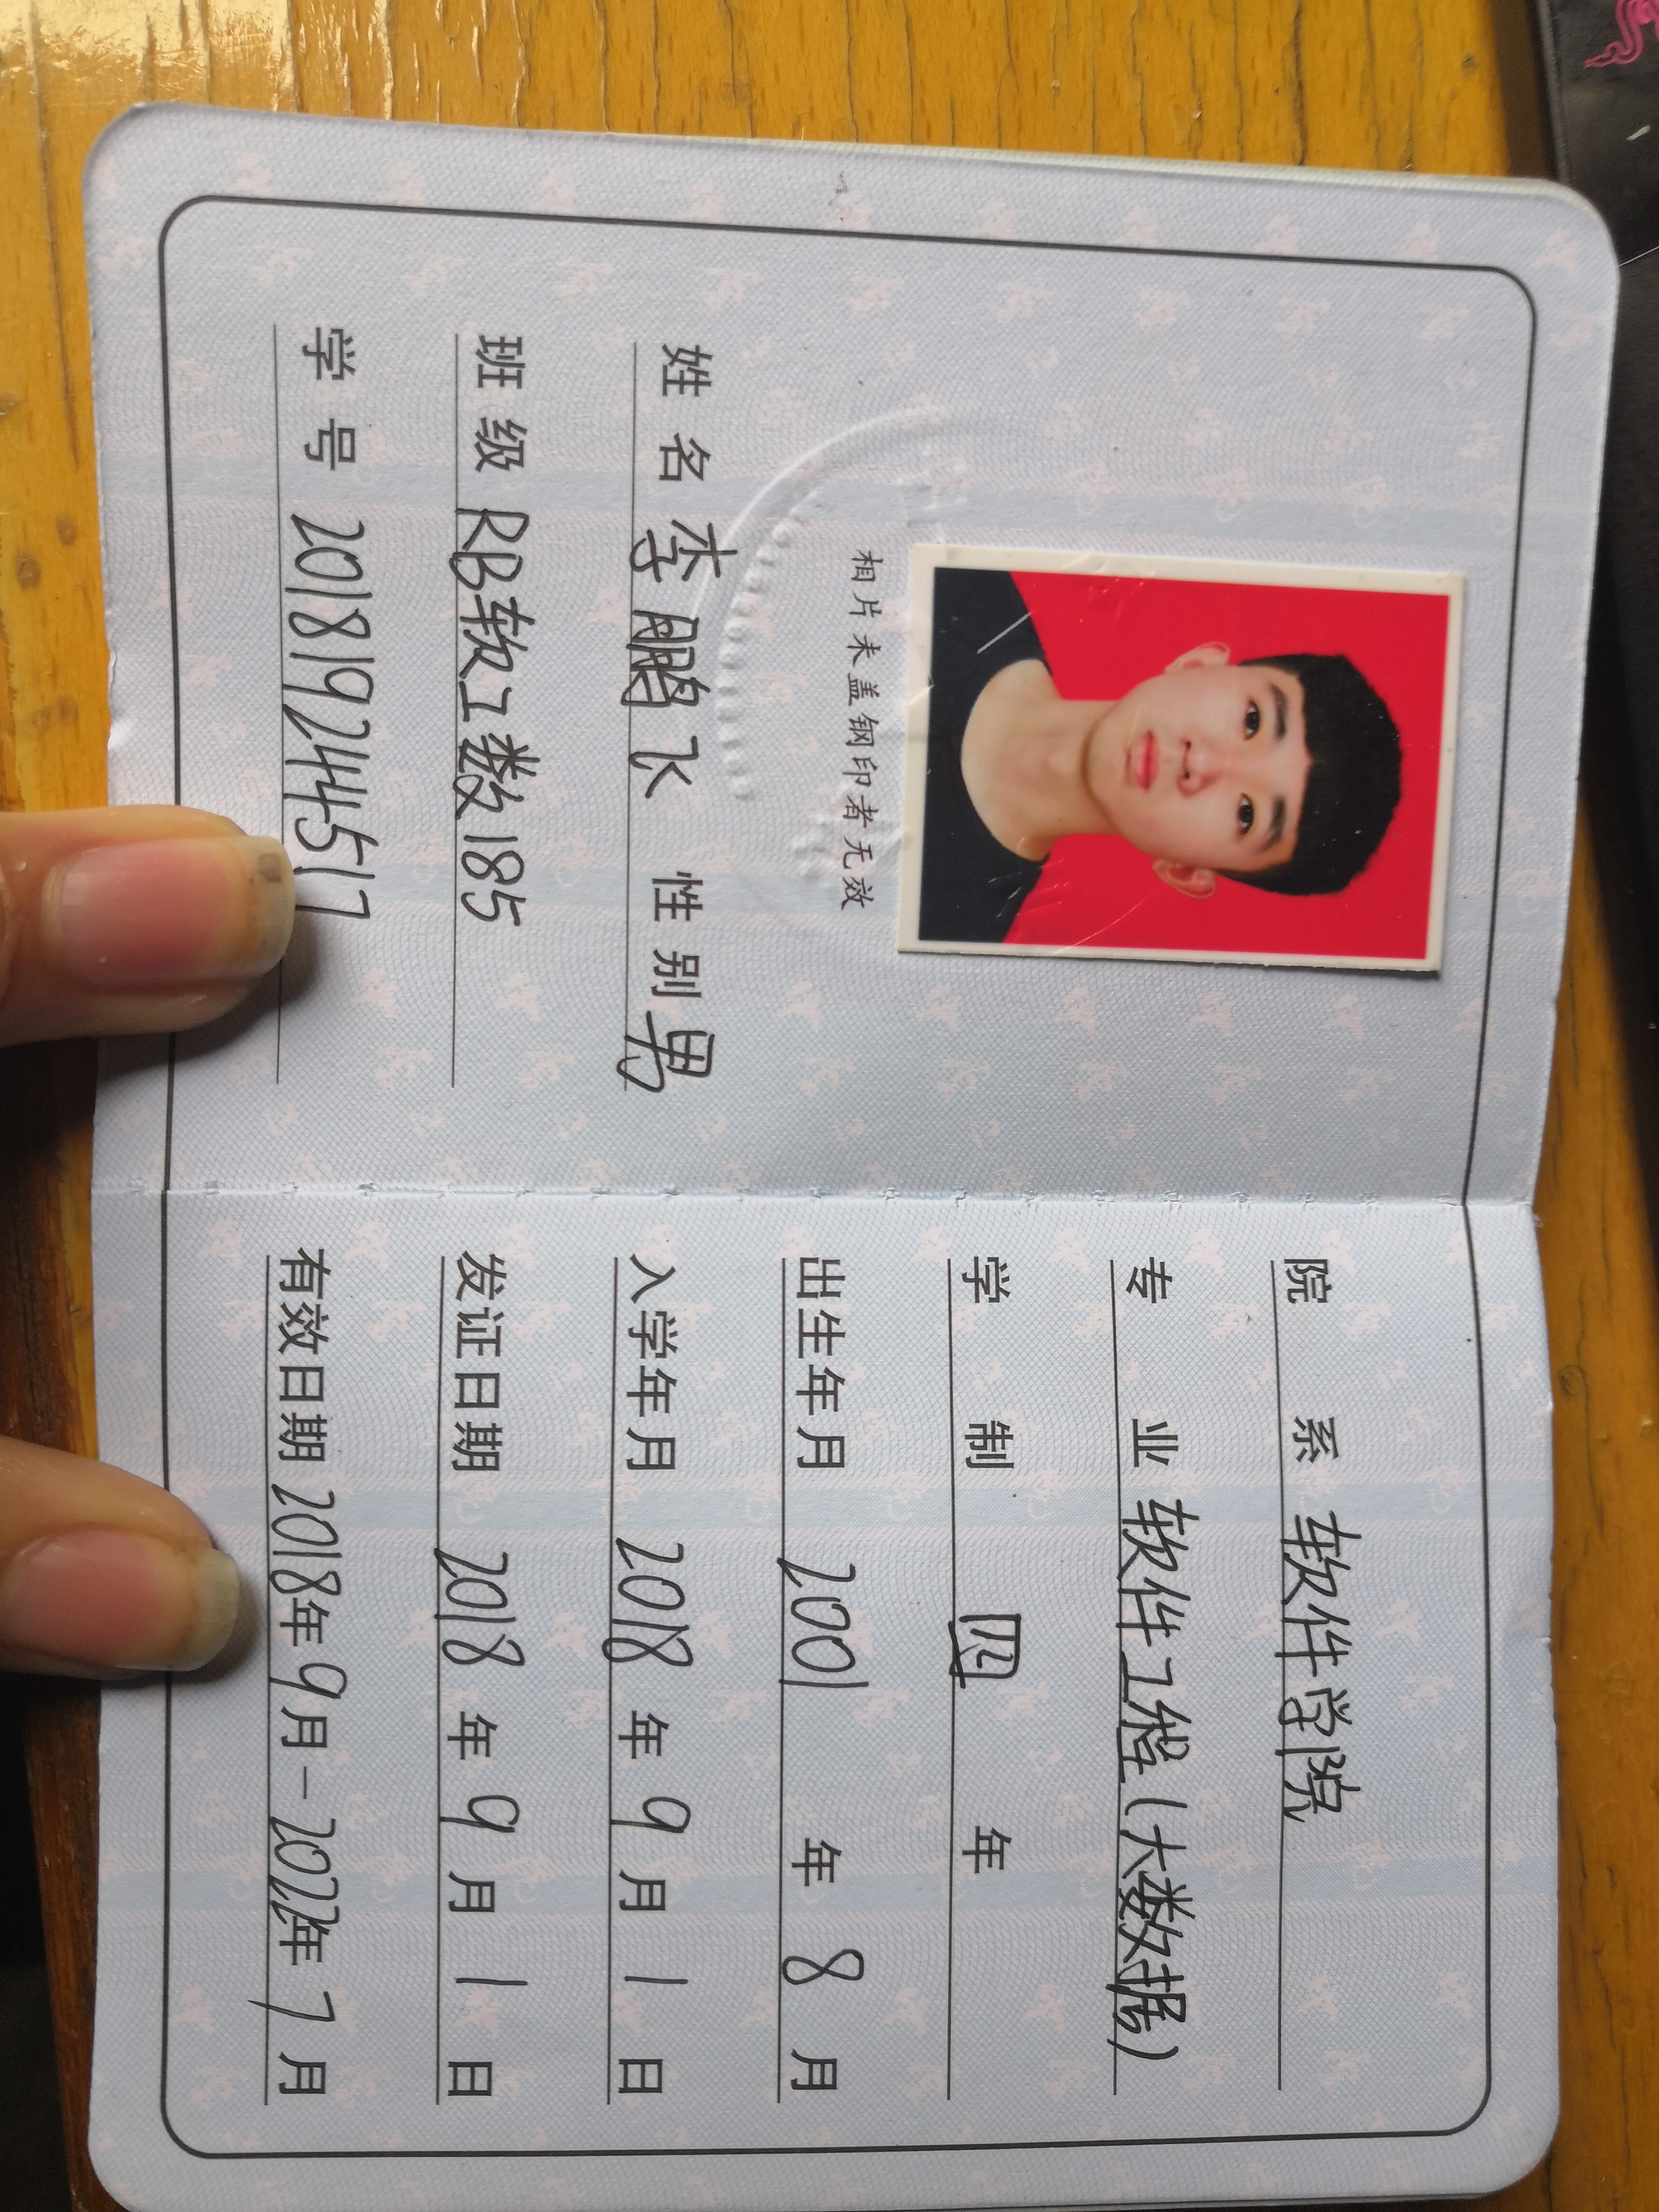 相片未盖钢印者无效
姓名 李鹏飞 性别 男
班级 RB软工数185
学号 2018192444517
院系 软件学院
专业 软件工程(大数据)
学制 四 年
出生年月 2001 年 8 月
入学年月 2018 年 9 月 1 日
发证日期 2018 年 9 月 1 日
有效日期 2018年9月-2022年7月